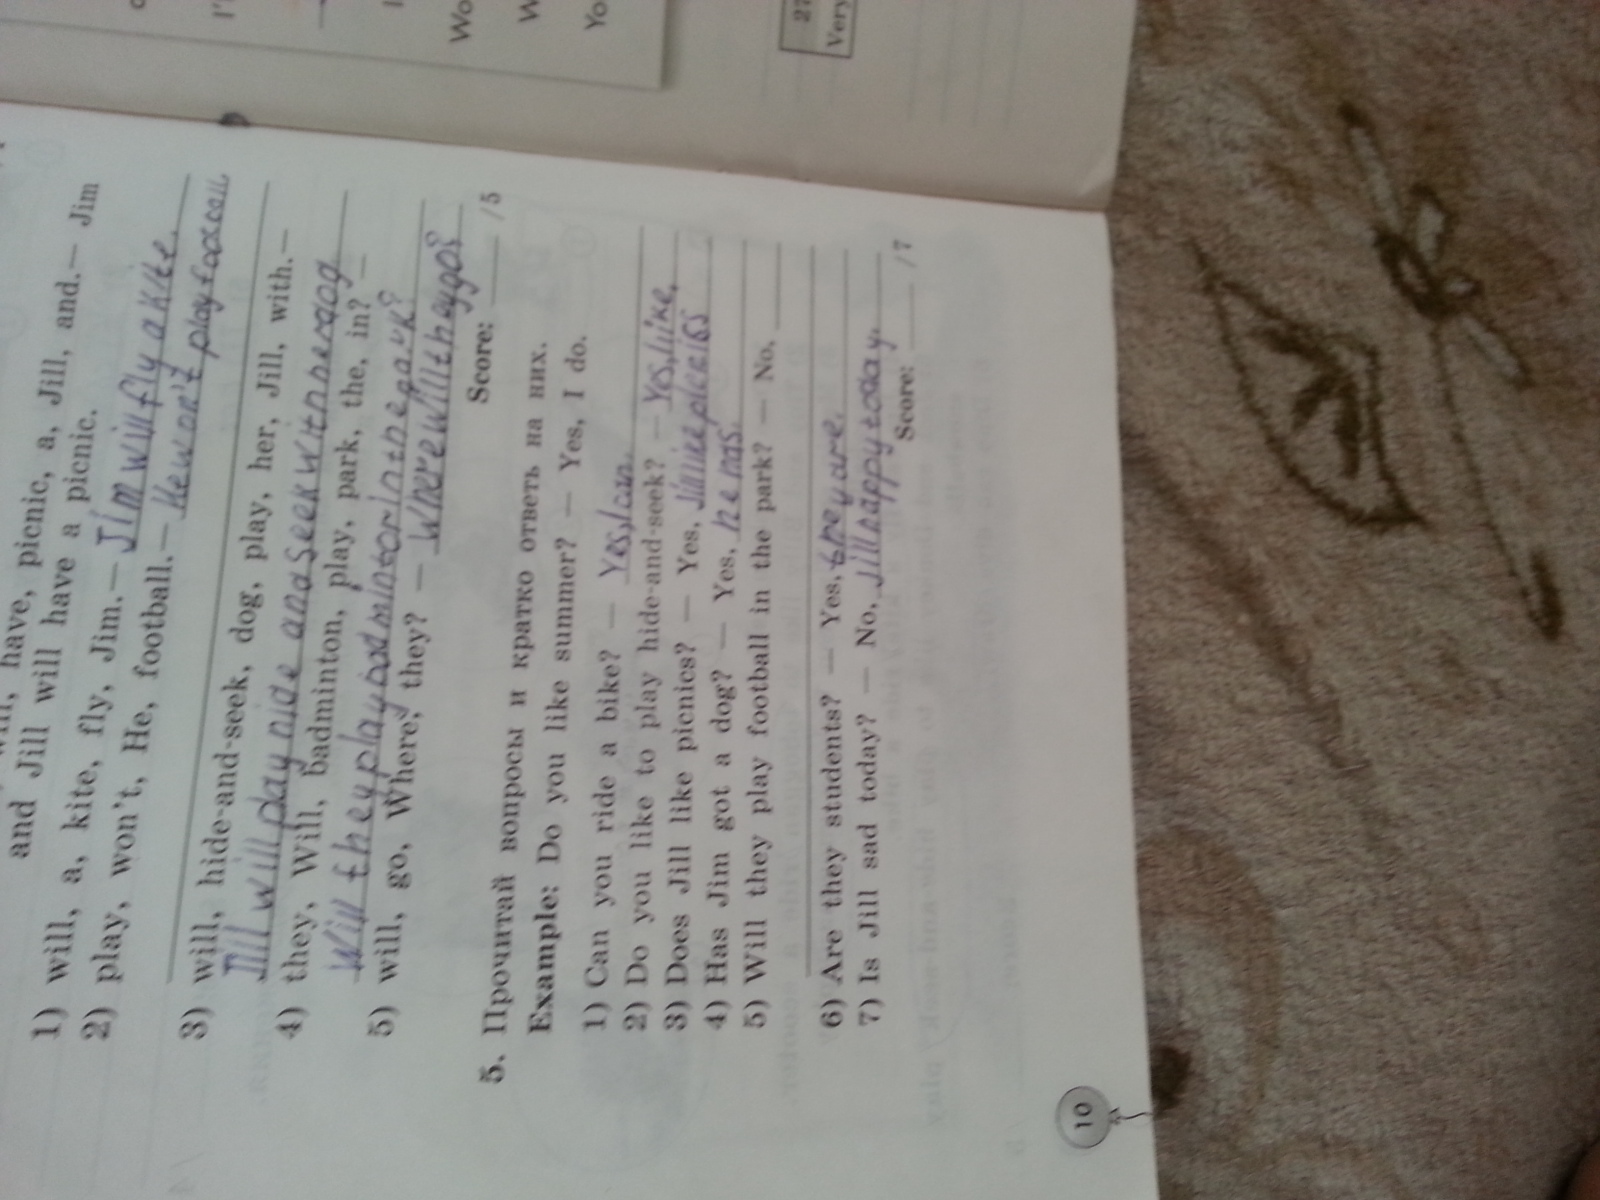 will, have, picnic, a, Jill, and. – Jim
and Jill will have a picnic.
1) will, a, kite, fly, Jim. – Jim will fly a kite.
2) play, won't, He, football. – He won't play
3) will, hide-and-seek, dog, play, her, Jill, with. –
Jill will play hide and seek with her dog
4) they, Will, badminton, play, park, the, in? –
Will they play badminton in the park?
5) will, go, Where, they? – Where will they go?
Score: /5
5. Прочитай вопросы и кратко ответь на них.
Example: Do you like summer? – Yes, I do.
1) Can you ride a bike? – Yes, I can.
2) Do you like to play hide-and-seek? – Yes, like.
3) Does Jill like picnics? – Yes,
4) Has Jim got a dog? – Yes, he has.
5) Will they play football in the park? – No,
6) Are they students? – Yes, they are.
7) Is Jill sad today? – No, Jill happy today.
Score: /7
10
Wo
W
Yo
27
Very